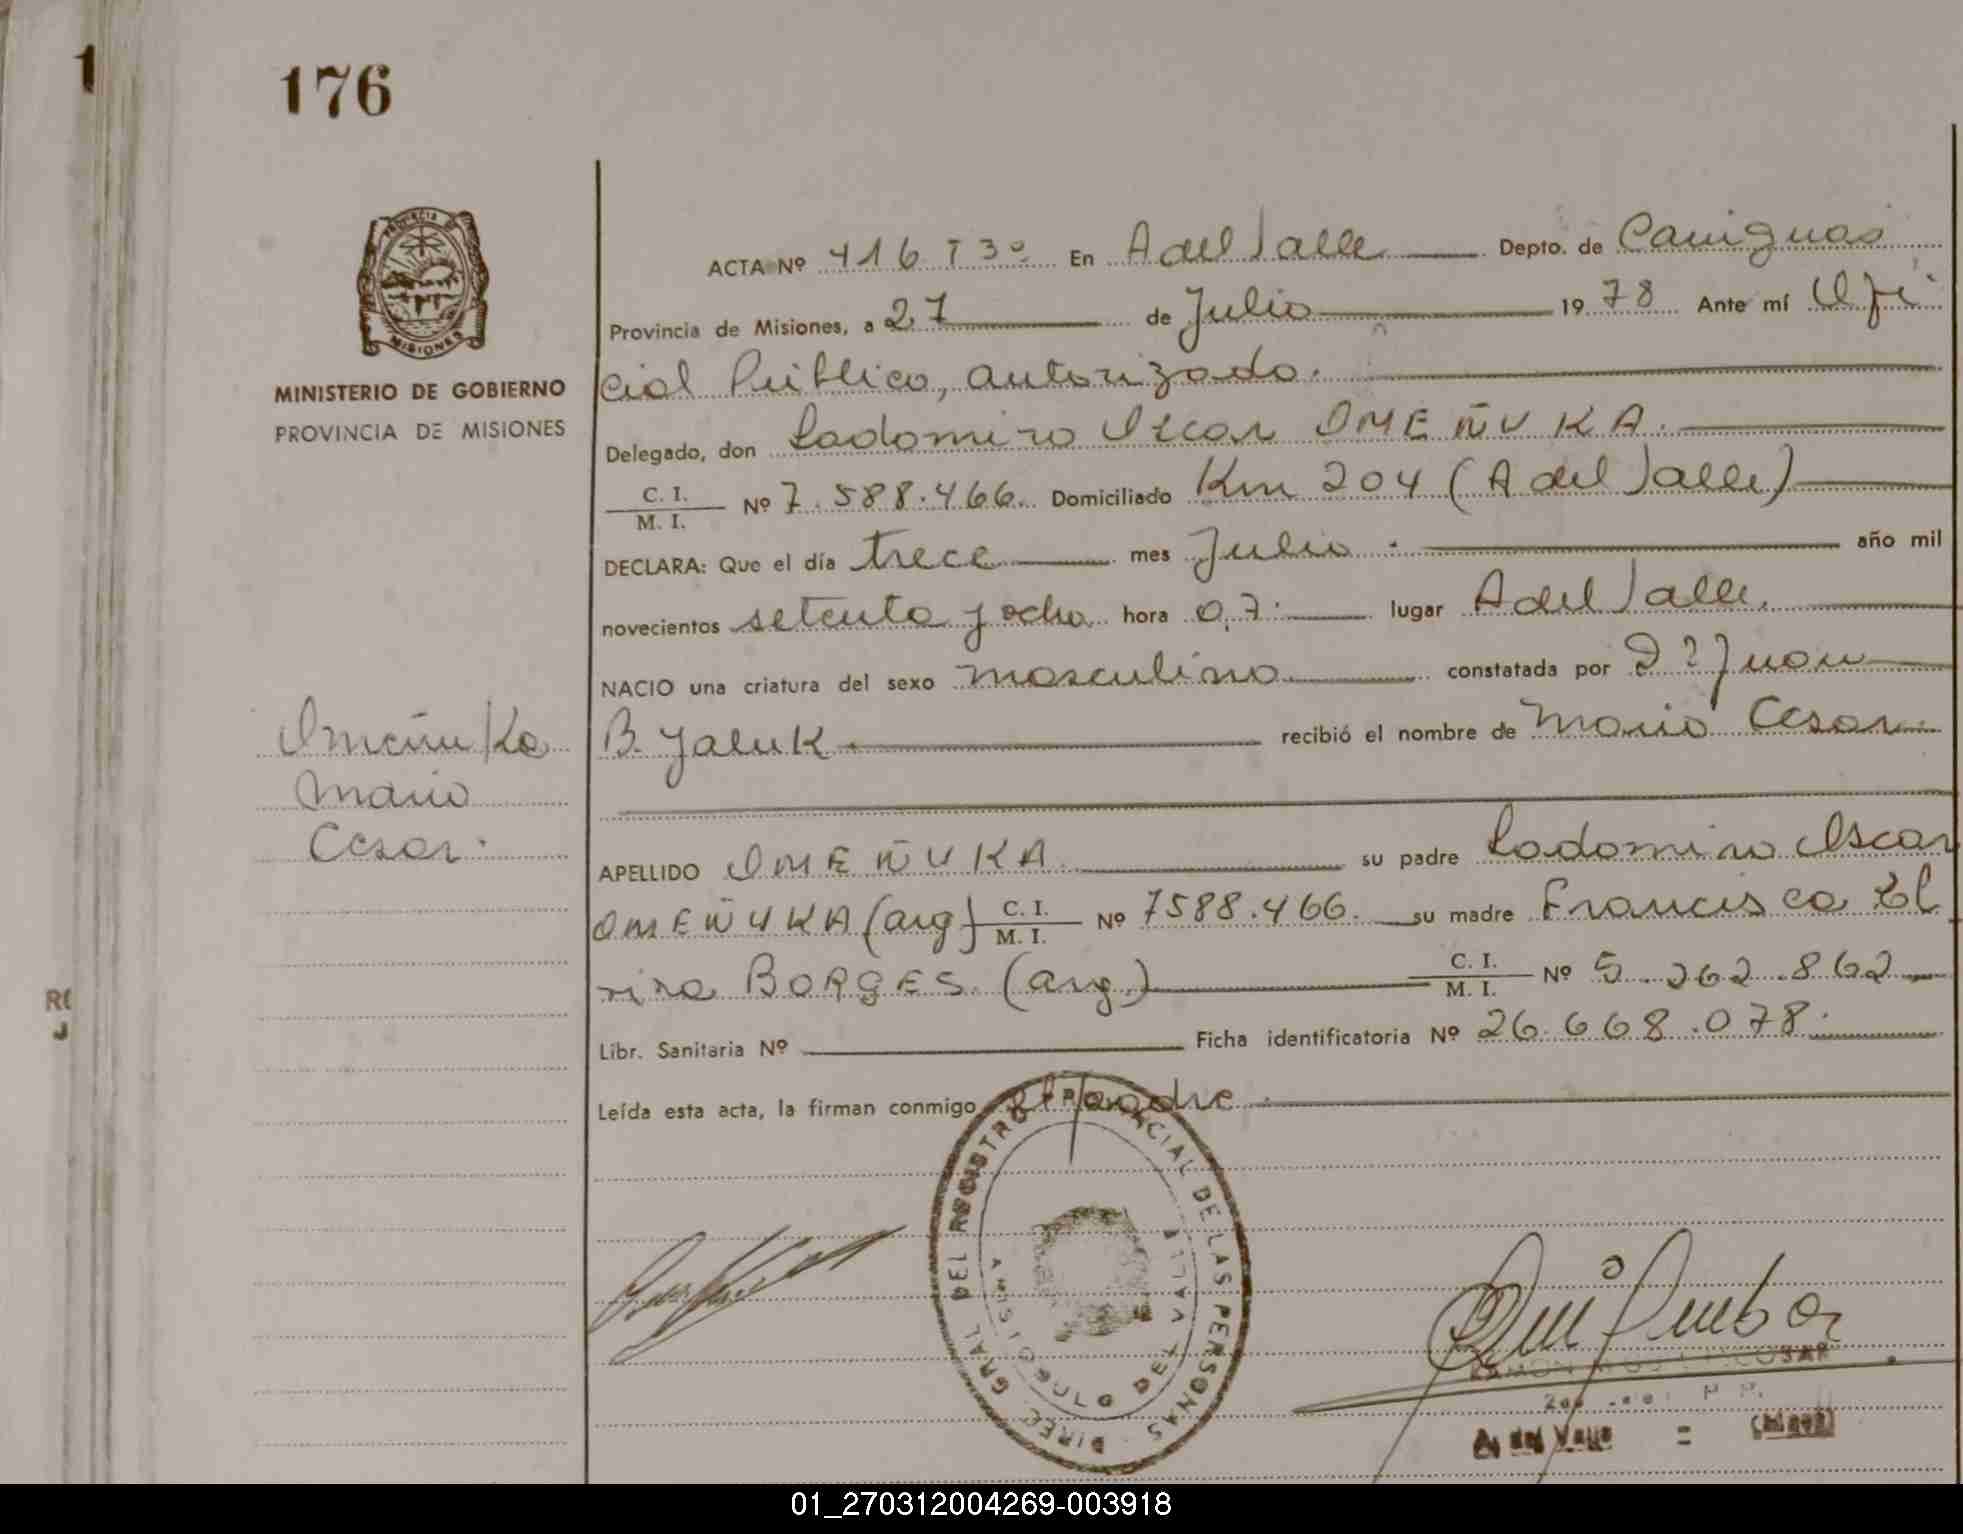 1
176
PROVINCIA DE
MISIONES
MINISTERIO DE GOBIERNO
PROVINCIA DE MISIONES
ACTA Nº 416 T 3º En A del Valle Depto. de Cainguas
Provincia de Misiones, a 27 de Julio 1978 Ante mí Ofi
cial Público, autorizado.
Delegado, don Ladomiro Oscar OMEÑUKA.
C. I. / M. I. Nº 7.588.466. Domiciliado Km 204 (A del Valle)
DECLARA: Que el día trece mes Julio. año mil
novecientos setenta y ocho hora 0,7. lugar A del Valle.
NACIO una criatura del sexo masculino constatada por Dº Juan
B. Yaluk. recibió el nombre de Mario Cesar.
Omeñuka
Mario
Cesar.
APELLIDO OMEÑUKA. su padre Ladomiro Oscar
OMEÑUKA (arg) C. I. / M. I. Nº 7588.466. su madre Francisca El
vira BORGES. (arg.) C. I. / M. I. Nº 5.262.862
Libr. Sanitaria Nº Ficha identificatoria Nº 26.668.078.
Leída esta acta, la firman conmigo el padre.
DIREC. GRAL. DEL REGISTRO PROVINCIAL DE LAS PERSONAS
A. del Valle = (Mnes)
01_270312004269-003918